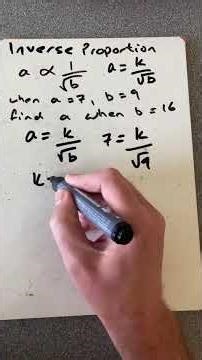 Inverse Proportion
a ∝ 1/√b  a = k/√b
when a=7, b=9
find a when b=16
a = k/√b  7 = k/√9
k